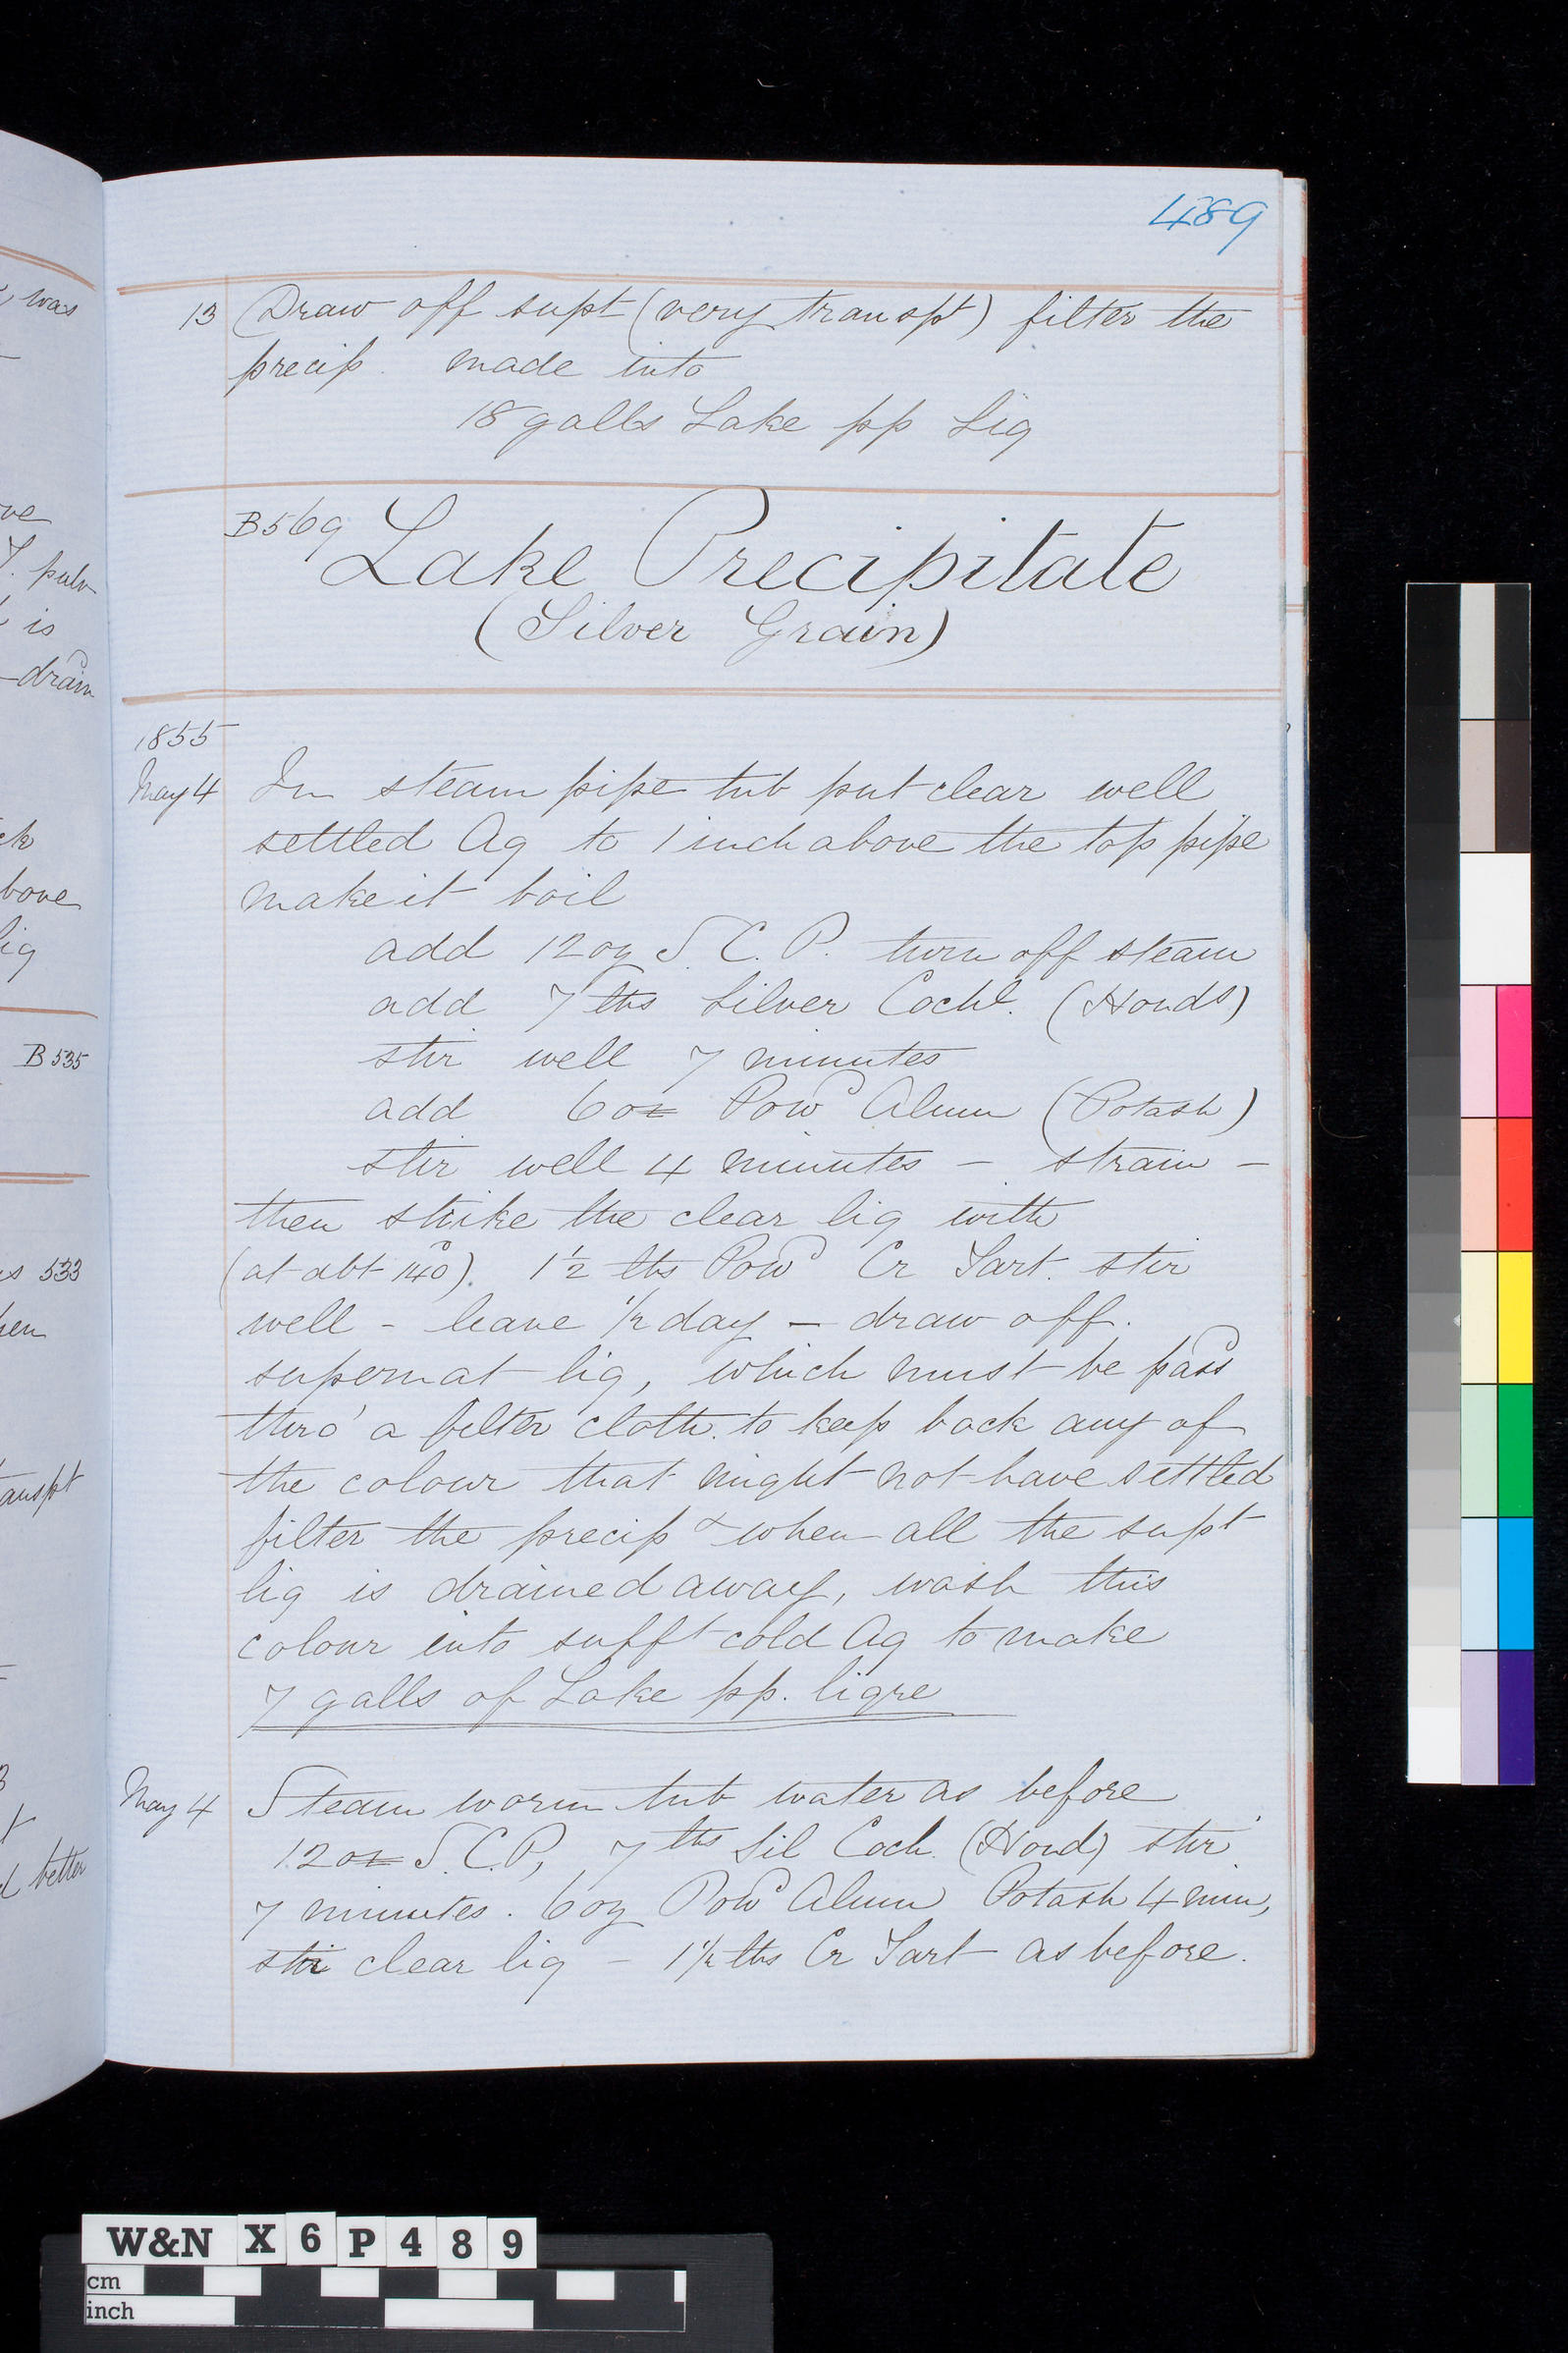 489
13 Draw off supt (very transpt) filter the
precip. made into
18 galls Lake pp Liq
B569 Lake Precipitate
(Silver Grain)
1855
May 4 In steam pipe tub put clear well
settled Aq to 1 inch above the top pipe
make it boil
add 12 oz S. C. P. turn off steam
add 7 lbs Silver Cochl. (Honds)
stir well 7 minutes
add 6 oz Powd Alum (Potash)
stir well 4 minutes - strain -
then strike the clear liq with
(at abt 140°). 1½ lbs Powd Cr Tart. stir
well - leave ½ day - draw off.
supernat liq, which must be passd
thro' a filter cloth. to keep back any of
the colour that might not have settled
filter the precip & when all the supt
liq is drained away, wash this
colour into sufft cold Aq to make
7 galls of Lake pp. liqre
May 4 Steam worm tub water as before
12 oz S. C. P, 7 lbs Sil Coch. (Hond) stir
7 minutes. 6 oz Powd Alum Potash 4 min,
stir clear liq - 1½ lbs Cr Tart as before.
was
ve
T. pulv
is
drain
ck
bove
liq
B 535
s 533
hen
anspt
better
W&N X 6 P 4 8 9
cm
inch